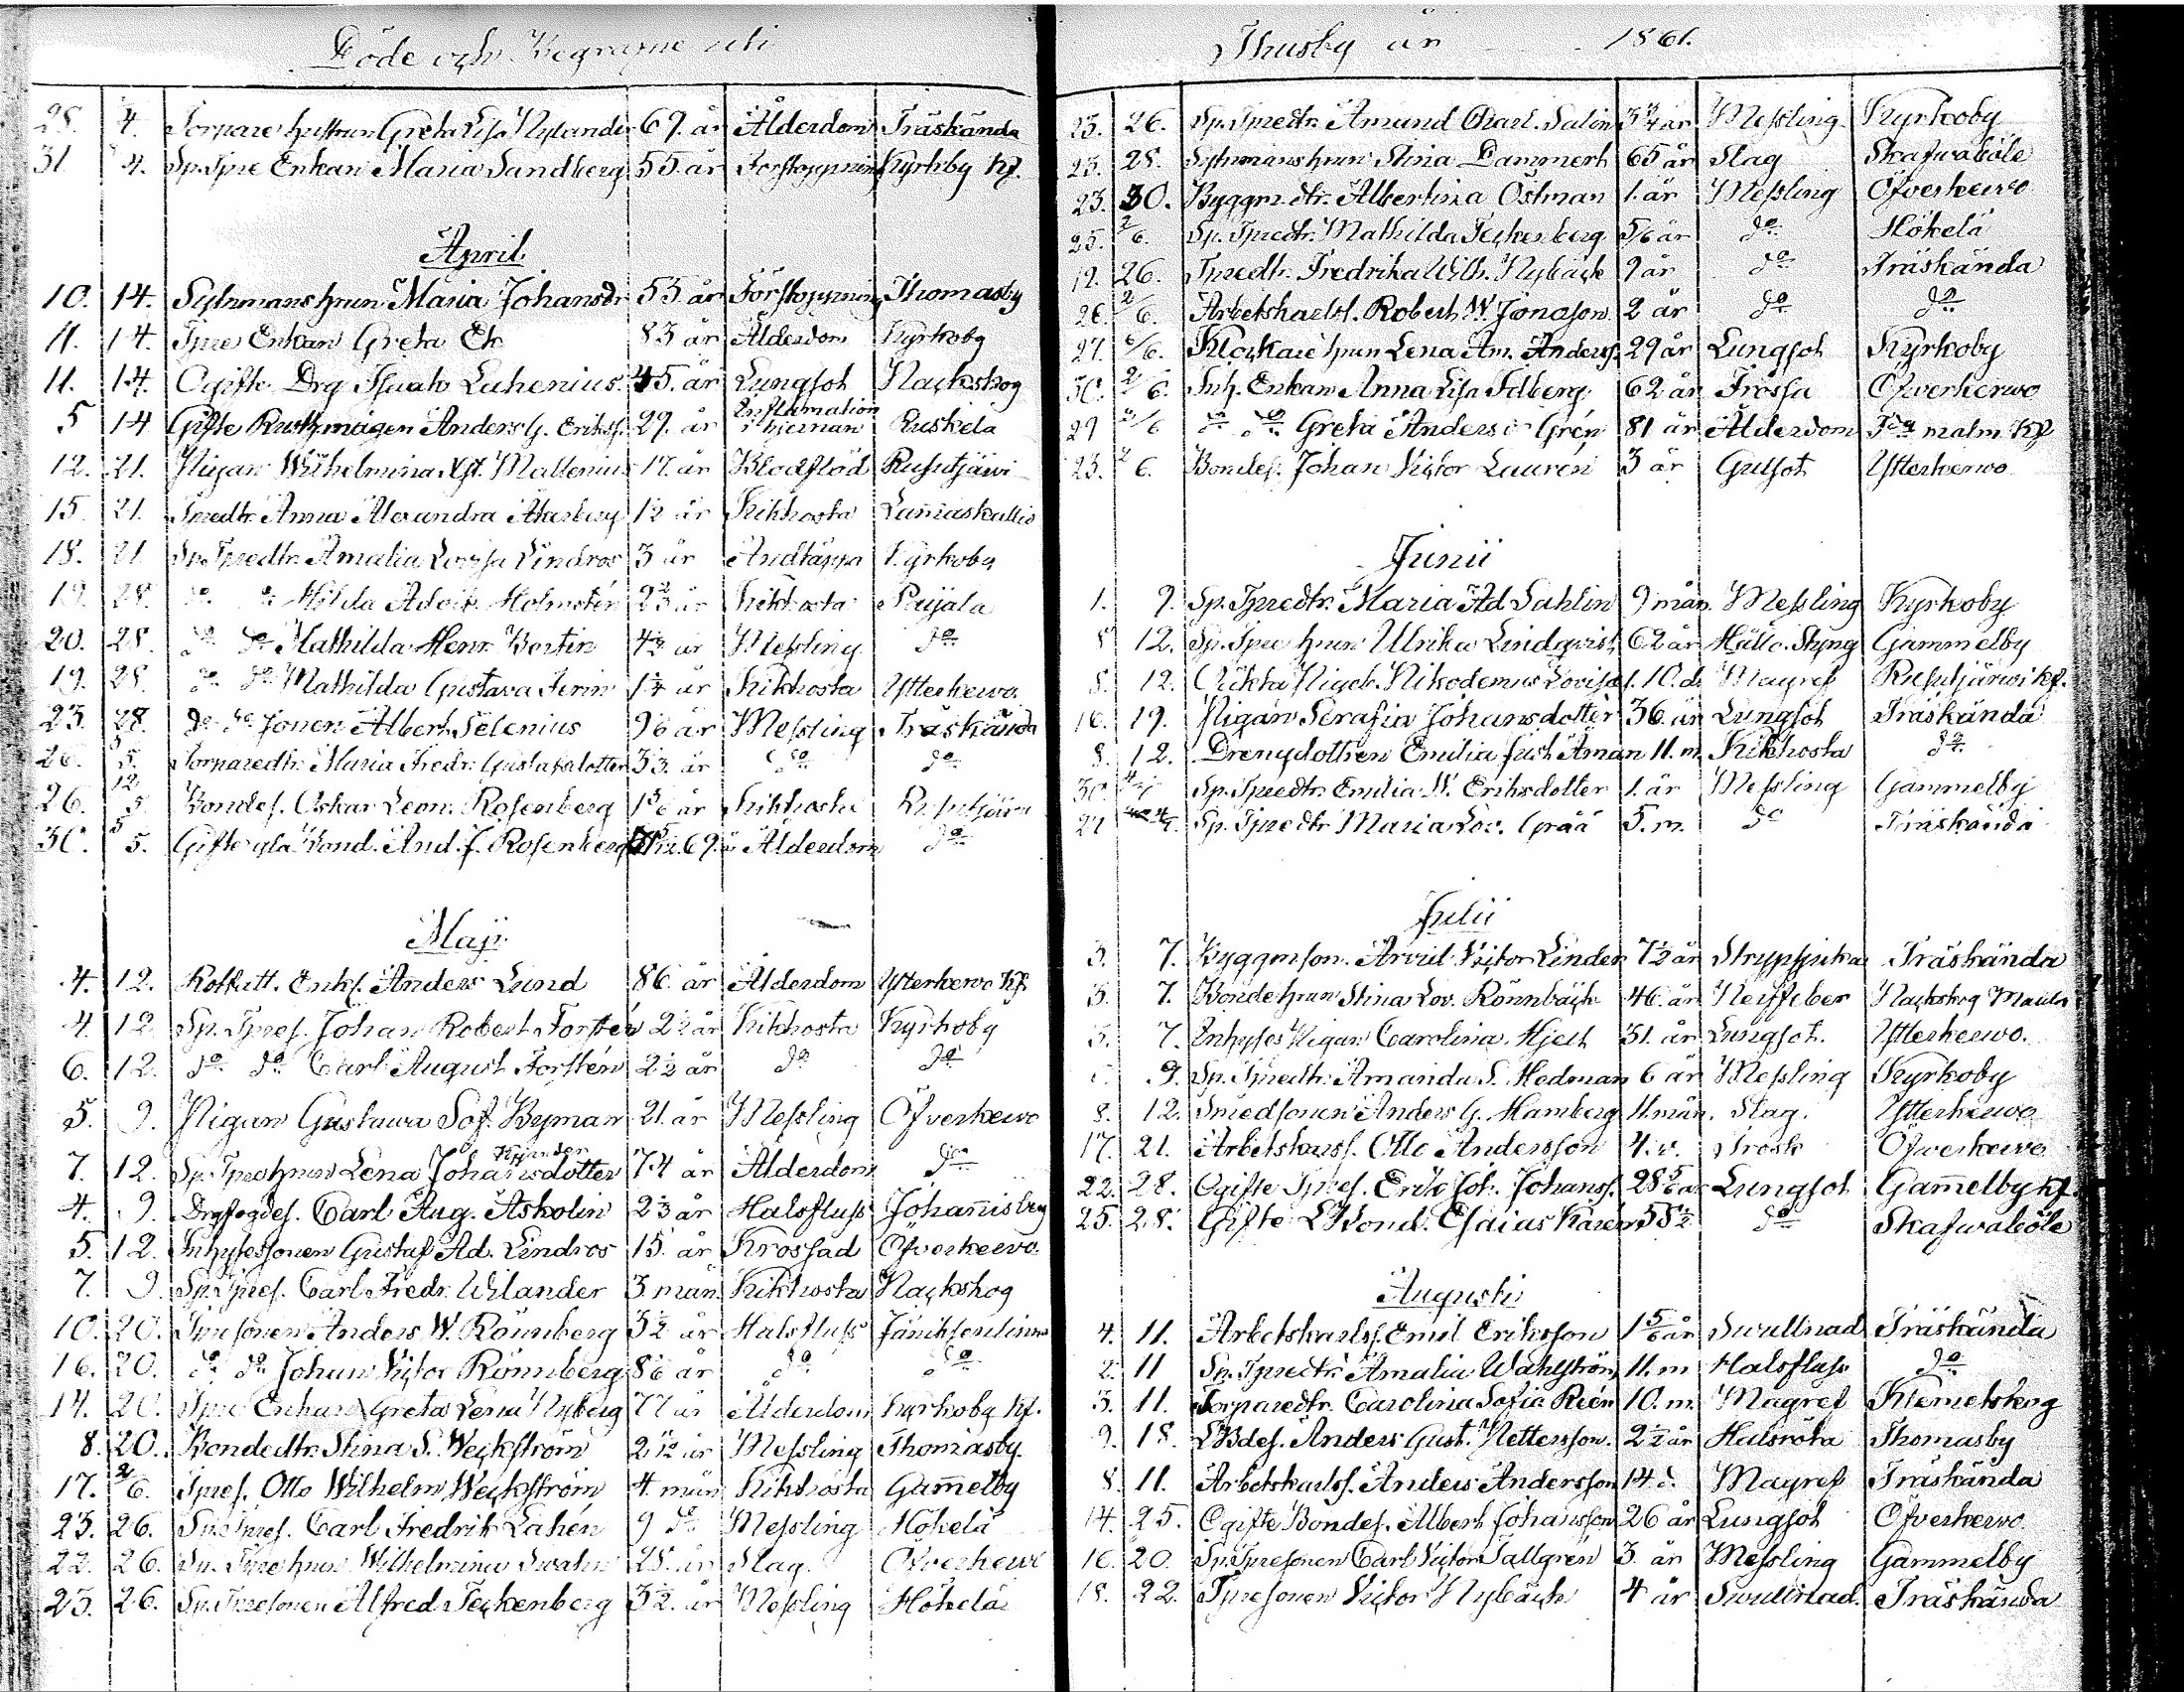 Döde och Begrafne uti
28. 4. Torpare hustrun Greta Lisa Nylander 67. år Ålderdom Träskända
31 4. Sp. Tpre Enkan Maria Sandberg 55. år Förstoppning Kyrkby Kf.
April
10. 14. Sytnmans hrun Maria Johansdr 55 år Förstoppning Thomasby
11. 14. Tpre Enkan Greta Ek 83 år Ålderdom Kyrkoby
11. 14. Ogifte Drg Isaak Luhenius 45. år Lungsot Nackskog
5 14 Gifte Rusthmågen Anders G. Erikss. 29. år Inflamation i hjernan Ruskela
12. 21. Pigan Wilhelmina Mallenius 17. år Blodflöd Rusutjärvi
15. 21. Tpredtr Anna Alexandra Åkerberg 12 år Kikhosta
18. 21 Sp. Tpredtr. Amalia Lovisa Lindros 3 år Andtäppa Kyrkoby
19. 28. do do Hilda Holmstén Kikhosta Paijala
20. 28. do do Mathilda Henr. 4½ år Messling do
19. 28. do do Mathilda Gustava 1¼ år Kikhosta Ytterkerwo
23. 28. do do sonen Albert Selenius Messling Träskända
26. 5/5. Torparedtr. Maria Fredr. Gustafsdotter år do do
26. 12/5 Bondes. Oskar Leon. Rosenberg år Kikhosta Rusutjärvi
30. 5/5. Gifte gla Bond. And. J. Rosenberg 69. år Ålderdom do
Maji
4. 12. Rotfatt. Enkl. Anders Lund 86. år Ålderdom Ytterkerwo Kf.
4. 12 Sp. Tpres. Johan Robert Forstén 2½ år Kikhosta Kyrkoby
6. 12. do do Carl August Forstén 2½ år do do
5. 9. Pigan Gustawa Sof. Byman 21. år Messling Öfverkerwo
7. 12. Sp. Tprehrun Lena Johansdotter 74 år Ålderdom do
4. 9. Drgfogdes. Carl Aug. Askolin 2⅔ år Halsfluss Johannisberg
5. 12. Inhysessonen Gustaf Ad. Lindros 15. år Krossad Öfverkerwo.
7. 9. Sp. Tpres. Carl Fredr. Wilander 3 mån Kikhosta Nackskog
10. 20. Tpresonen Anders W. Rönnberg 3½ år Halsfluss
16. 20. do do Johan Victor Rönnberg år do do
14. 20. Tpre Enkan Greta Lena Nyberg 77 år Ålderdom Kyrkoby Kf.
8. 20. Bondedtr. Stina S. Weckström år Messling Thomasby
17. 2/6. Tpres. Otto Wilhelm Weckström 4 mån Kikhosta Gammelby
23. 26. Sp. Tpres. Carl Fredrik Lahén 9 do Messling Hökelä
22. 26. Sp. Tprehrun Wilhelmina Swahn 28. år Slag Öfverkerwo
23. 26. Sp. Tpresonen Alfred Teckenberg 3½. år Messling Hökelä
Thusby år 1861.
23. 26. Sp. Tpredtr. Amand Charl. Salin 3¾ år Messling Kyrkoby
23. 28. Sytnmanshrun Stina Dammert 65 år Slag Skafwaböle
23. 30. Byggm. dtr. Albertina Östman 1. år Messling Öfverkerwo
25. 2/6. Sp. Tpredtr. Mathilda Teckenberg 5/6 år do Hökelä
19. 26. Tpredtr. Fredrika Wilh. Nybäck 9 år do Träskända
26. 2/6. Arbetskarlss. Robert W. Jonasson 2 år do do
27. 6/6. Klockare hrun Lena An. Anderss. 29 år Lungsot Kyrkoby
30. 2/6. Inh. Enkan Anna Lisa Idberg 62 år Frossa Öfverkerwo
29 2/6 do do Greta Grén 81 år Ålderdom malm Kf
23. 2/6. Bondes. Johan Victor Laurén 3 år Gulsot Ytterkerwo
Junii
1. 9. Sp. Tpredtr. Maria Ad Sahlin 9 mån. Messling Kyrkoby
8 12. Sp. Tpre hrun Ulrika Lindqvist 62 år Håll o. Styng Gammelby
8. 12. Oäkta Pigeb. Nikodemus 10. d. Magref Rusutjärwi Kf.
16. 19. Pigan Serafia Johansdotter 36. år Lungsot Träskända
8. 12. Drengdottren Emilia Just. Åman 11. m. Kikhosta do
30. Sp. Tpredtr. Emilia W. Eriksdotter 1. år Messling Gammelby
27 Sp. Tpredtr. Maria Lov. Gråå 5. m. do Träskända
Julii
3. 7. Byggmson. Arvid Victor Linder 7½ år Strypsjuka Träskända
3. 7. Bondehrun Stina Lov. Rönnbäck 46. år Nerffeber Nackskog
3. 7. Inhyses Pigan Carolina Hjelt 31. år Lungsot. Ytterkerwo.
9. Sp. Tpredtr. Amanda S. Hedman 6 år Messling Kyrkoby
8. 12. Smedsonen Anders G. Hamberg 11. mån. Slag. Ytterkerwo
17. 21. Arbetskarss. Otto Andersson 4. v. Trosk Öfverkerwo
22. 28. Ogifte Tpres. Erik Joh. Johanss. 28 5/6 år Lungsot Gammelby Kf.
25. 28. Gifte LBond. Esaias Karén 55½ do Skafwaböle
Augusti
4. 11. Arbetskarlss. Emil Eriksson 1 5/6 år Swullnad Träskända
2. 11 Sp. Tpredtr. Amalia Wahlström 11. m Halsfluss do
3. 11. Torparedtr. Carolina Sofia Reén 10. m. Magref Klemetskog
9. 18. LBdes. Anders Gust. Pettersson. 2½ år Halsröta Thomasby
8. 11. Arbetskarlss. Anders Andersson 14 d. Magref Träskända
14. 25. Ogifte Bondes. Albert Johansson 26 år Lungsot Öfverkerwo
16. 20. Sp. Tpresonen Carl Victor Tallgrén 3. år Messling Gammelby
18. 22. Tpresonen Victor Nybäck 4 år Swullnad. Träskända